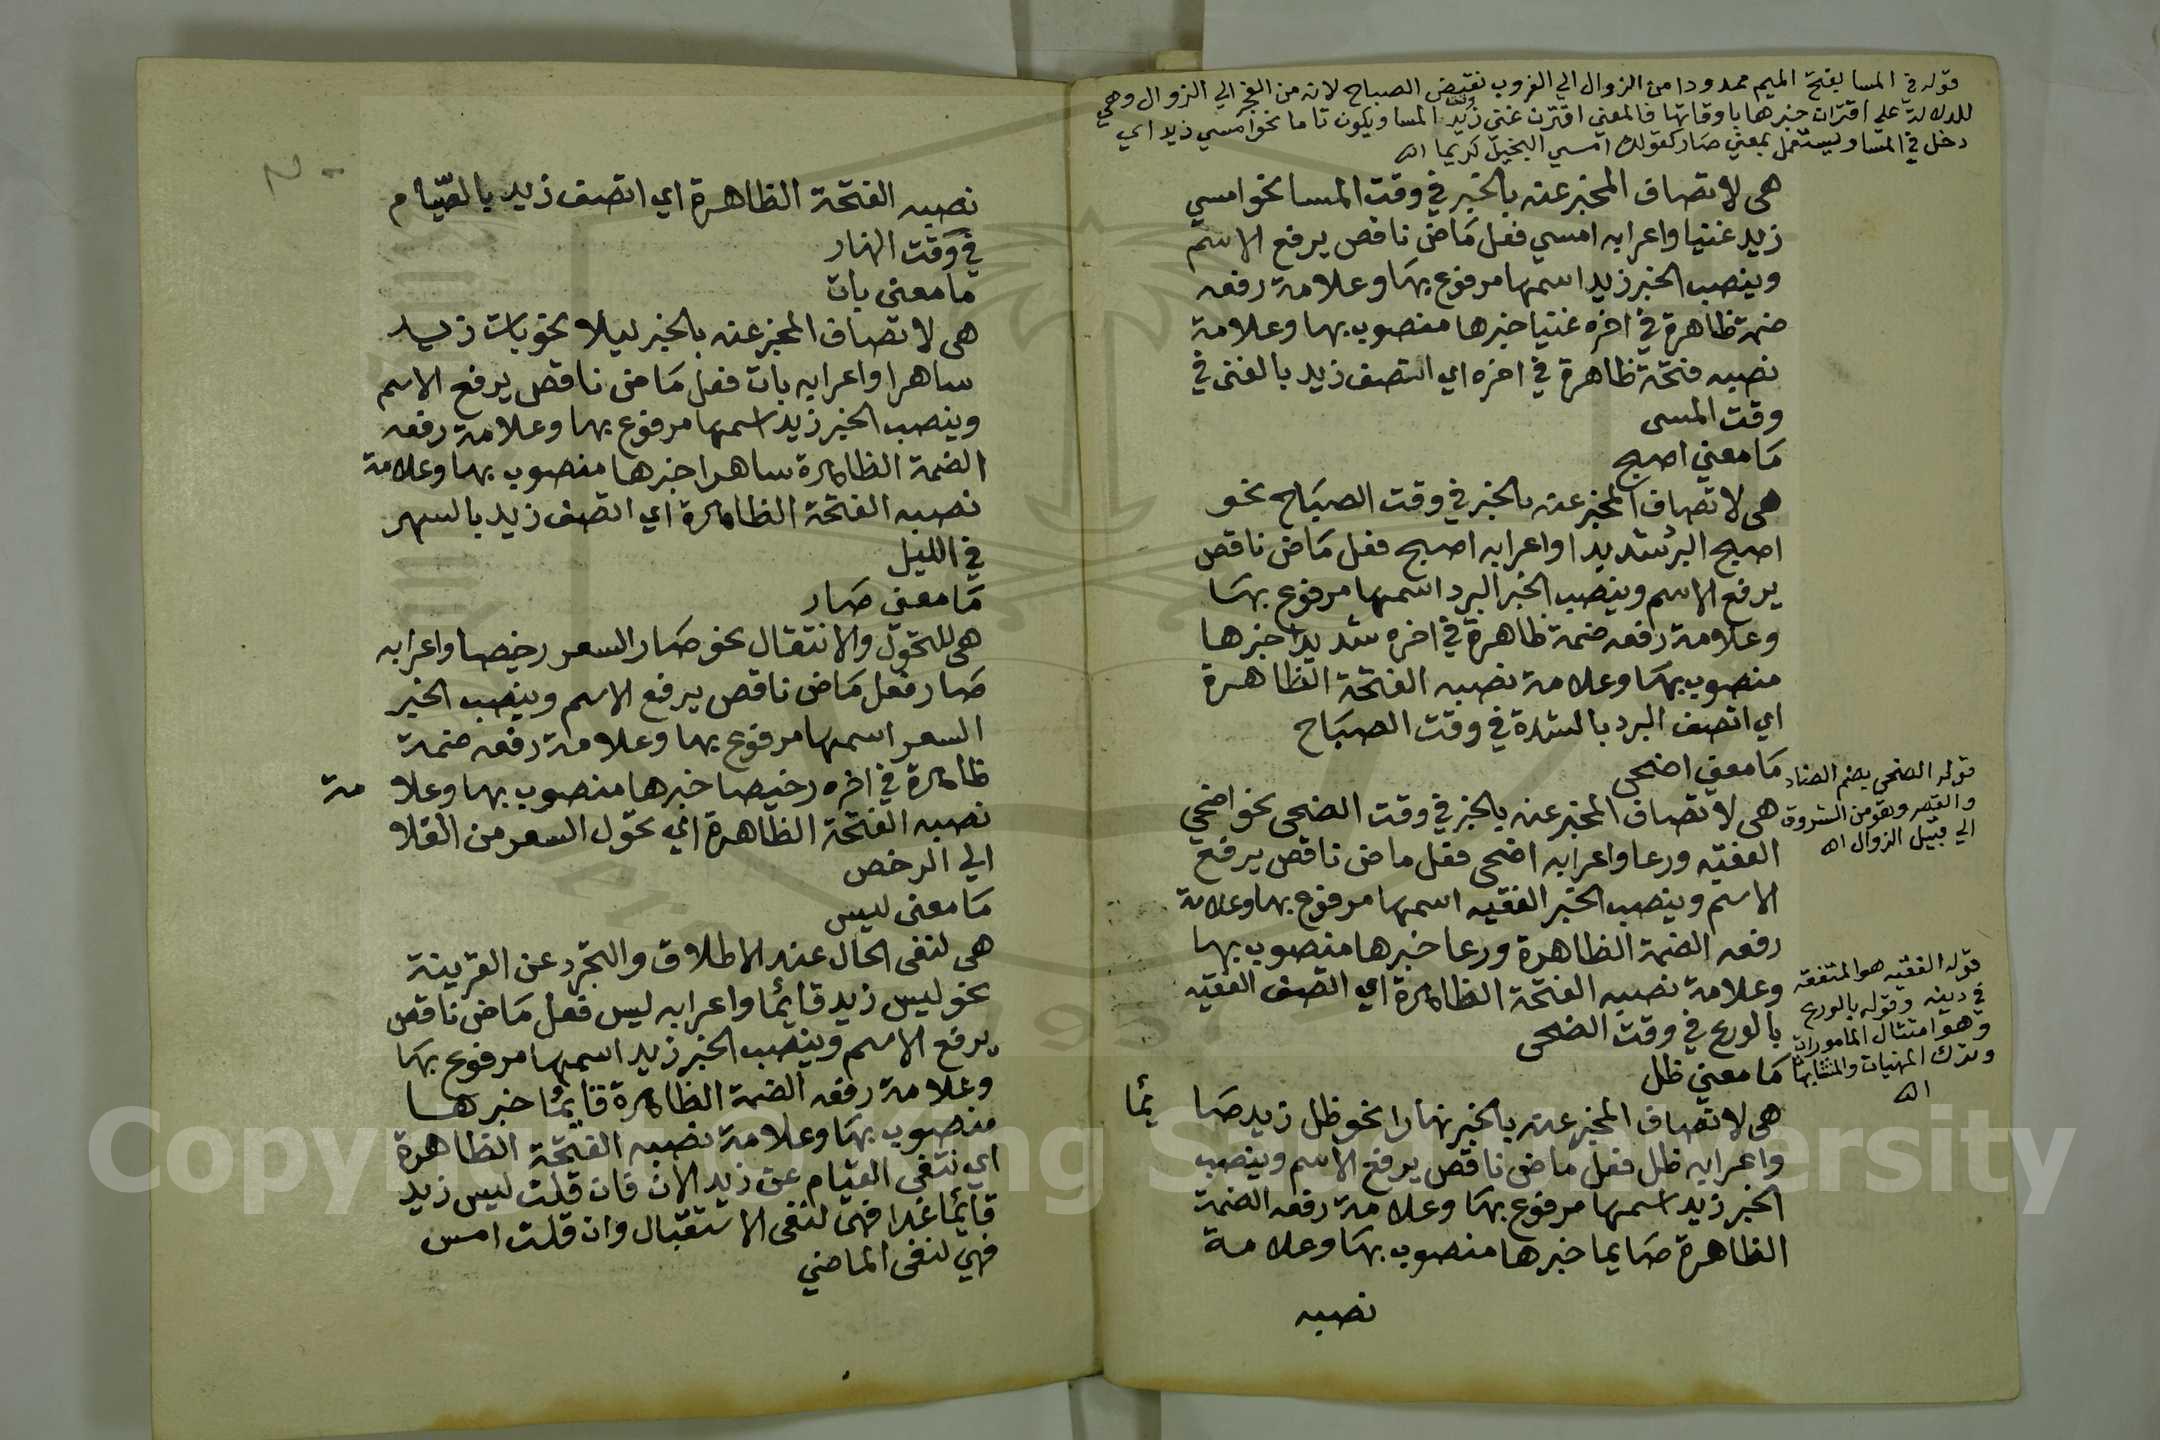 قوله في المسا بفتح الميم ممدودا من الزوال الي الغروب نقيض الصباح لانه من الفجر الي الزوال وهي
للدلالة علي اقتران خبرها باوقاتها فالمعني اقترن غني زيد وقت المسا ويكون تاما نحو امسي زيد اي
دخل في المسا ويستعمل بمعني صار كقولك امسي البخيل كريما اه
هى لاتصاف المخبر عنه بالخبر في وقت المسا نحو امسي
زيد غنيا واعرابه امسي فعل مَاض ناقص يرفع الاسم
وينصب الخبر زيد اسمها مرفوع بهَا وعلامة رفعه
ضمة ظاهرة في اخره غنيا خبرها منصوب بها وعلامة
نصبه فتحة ظاهرة في اخره اي اتصف زيد بالغنى في
وقت المسى
مَا معني اصبح
هى لاتصاف المخبر عنه بالخبر في وقت الصبَاح نحو
اصبح البرد شديدا واعرابه اصبح فعل مَاض ناقص
يرفع الاسم وينصب الخبر البرد اسمها مرفوع بهَا
وعلامة رفعه ضمة ظاهرة في اخره شديدا خبرها
منصوب بهَا وعلامة نصبه الفتحة الظاهرة
اي اتصف البرد بالشدة في وقت الصبَاح
مَا معني اضحى
قوله الضحي بضم الضاد
والقصر وهو من الشروق
الي قبيل الزوال اه
هى لاتصاف المخبر عنه بالخبر في وقت الضحى نحو اضحي
الفقيه ورعا واعرابه اضحى فعل ماض ناقص يرفع
الاسم وينصب الخبر الفقيه اسمها مرفوع بها وعلامة
رفعه الضمة الظاهرة ورعا خبرها منصوب بها
وعلامة نصبه الفتحة الظاهرة اي اتصف الفقيه
بالورع في وقت الضحى
قوله الفقيه هو المتفقه
في دينه وقوله بالورع
وهو امتثال المامورات
وترك المنهيات والمتشابهات
اه
مَا معني ظل
هى لاتصاف المخبر عنه بالخبر نهارا نحو ظل زيد صَا ئما
واعرابه ظل فعل ماض ناقص يرفع الاسم وينصب
الخبر زيد اسمها مرفوع بهَا وعلامة رفعه الضمة
الظاهرة صَايما خبرها منصوب بهَا وعلامة
نصبه
نصبه الفتحة الظاهرة اي اتصف زيد بالصّيام
في وَقت النهار
مَا معنى بات
هى لاتصاف المخبر عنه بالخبر ليلا نحو بات زيد
ساهرا واعرابه بات فعل مَاض ناقص يرفع الاسم
وينصب الخبر زيد اسمها مرفوع بها وعلامة رفعه
الضمة الظاهرة ساهرا خبرها منصوب بها وعلامة
نصبه الفتحة الظاهرة اي اتصف زيد بالسهر
في الليل
مَا معني صَار
هى للتحول والانتقال نحو صَار السعر رخيصا واعرابه
صَار فعل مَاض ناقص يرفع الاسم وينصب الخبر
السعر اسمها مرفوع بها وعلامة رفعه ضمة
ظاهرة في اخره رخيصا خبرها منصوب بها وعلا مة
نصبه الفتحة الظاهرة اي تحول السعر من الغلا
الي الرخص
مَا معنى ليس
هى لنفى الحال عند الاطلاق والتجرد عن القرينة
نحو ليس زيد قائما واعرابه ليس فعل مَاض ناقص
يرفع الاسم وينصب الخبر زيد اسمها مرفوع بهَا
وعلامة رفعه الضمة الظاهرة قائما خبرها
منصوب بهَا وعلامة نصبه الفتحة الظاهرة
اي نتفى القيام عن زيد الان فان قلت ليس زيد
قائما غدا فهى لنفى الاستقبال وان قلت امس
فهي لنفى الماضي
Copyright © King Saud University